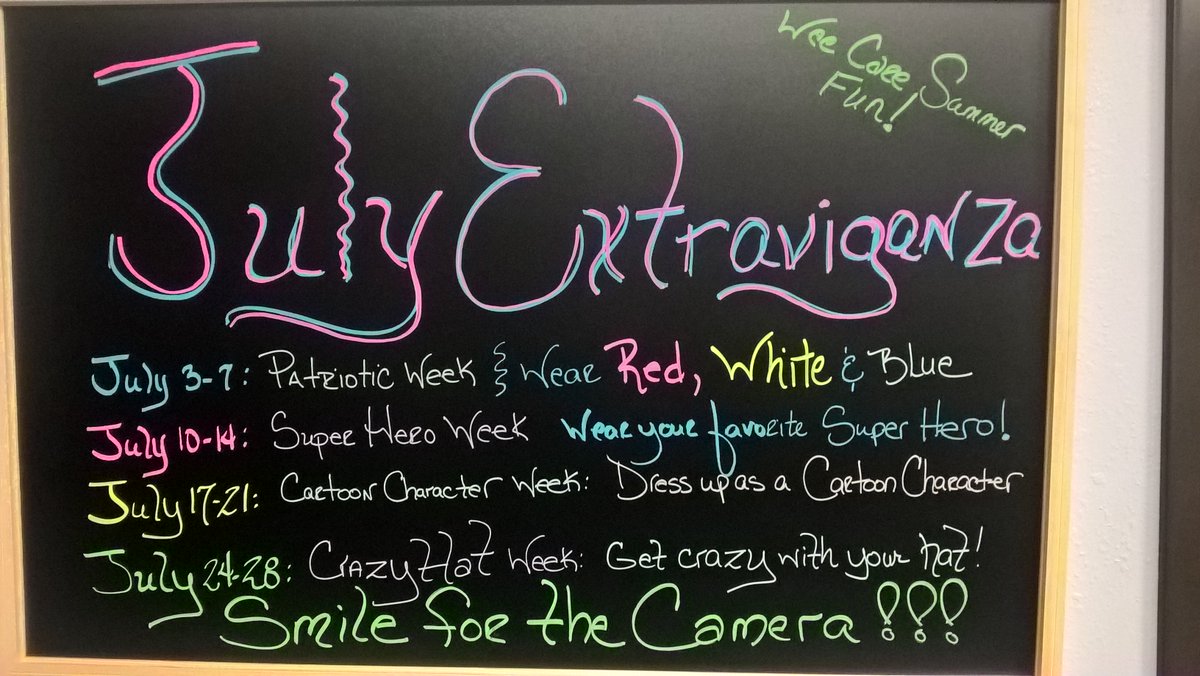 Wee Care Summer
Fun!
July Extraviganza
July 3-7: Patriotic Week & Wear Red, White & Blue
July 10-14: Super Hero Week Wear your favorite Super Hero!
July 17-21: Cartoon Character Week: Dress up as a Cartoon Character
July 24-28: Crazy Hat Week: Get crazy with your hat!
Smile for the Camera!!!